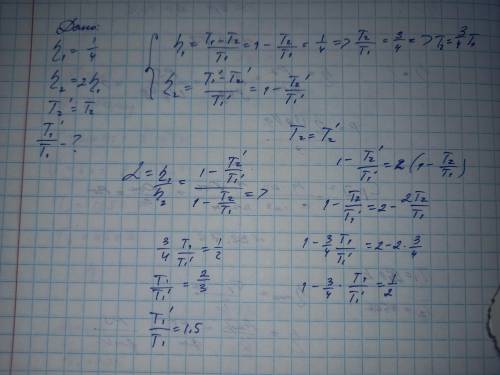 Дано:
η₁ = 1/4
η₂ = 2η₁
T₂' = T₂
T₁'/T₁ - ?
{ η₁ = (T₁ - T₂)/T₁ = 1 - T₂/T₁ = 1/4 => T₂/T₁ = 3/4 => T₂ = 3/4 T₁
η₂ = (T₁' - T₂')/T₁' = 1 - T₂'/T₁'
T₂ = T₂'
2 = η₁/η₂ = (1 - T₂'/T₁')/(1 - T₂/T₁) =>
1 - T₂'/T₁' = 2 (1 - T₂/T₁)
1 - T₂/T₁' = 2 - 2T₂/T₁
1 - 3/4 T₁/T₁' = 2 - 2 · 3/4
1 - 3/4 · T₁/T₁' = 1/2
3/4 T₁/T₁' = 1/2
T₁/T₁' = 2/3
T₁'/T₁ = 1.5